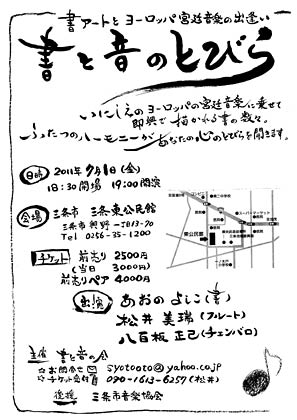 書アートと ヨーロッパ宮廷音楽の出逢い
書と音のとびら
いにしえのヨーロッパの宮廷音楽に乗せて
即興で描かれる書の数々。
ふたつのハーモニーが あなたの心のとびらを開きます。
日時 2011年7月1日(金)
18:30開場 19:00開演
会場 三条市 三条東公民館
三条市興野一丁目13-70
Tel 0256-35-1200
東公民館
チケット 前売り 2500円
(当日 3000円)
前売りペア 4000円
出演 あおの よしこ(書)
松井 美瑞(フルート)
八百板 正己(チェンバロ)
主催 書と音の会
☆お問合せ syotooto@yahoo.co.jp
☆チケット受付 090-1613-6257(松井)
後援 三条市音楽協会